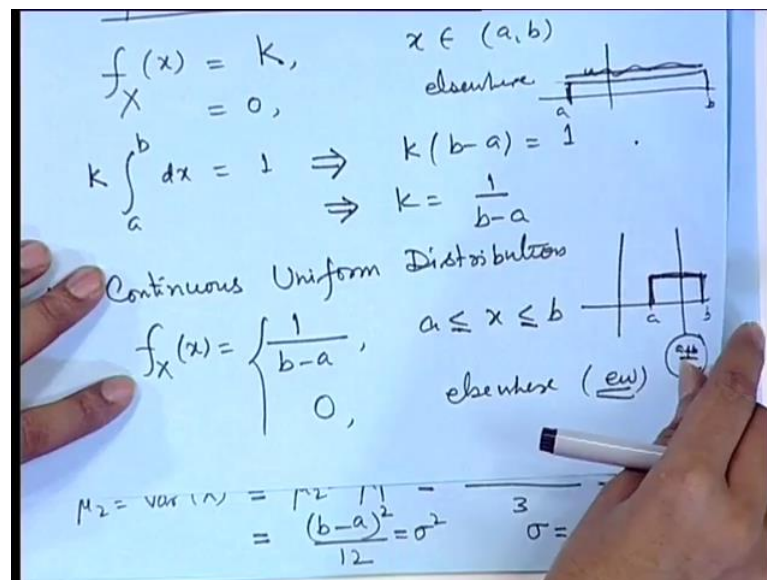 f_X(x) = k, x ∈ (a, b)
= 0, elsewhere
a b
k ∫_a^b dx = 1 ⇒ k(b-a) = 1 .
⇒ k = 1/(b-a)
Continuous Uniform Distribution
f_X(x) = { 1/(b-a), a ≤ x ≤ b
0, elsewhere (ew)
a b
a+b
μ_2 = var(X) = μ_2' -
3
= (b-a)^2/12 = σ^2 σ =